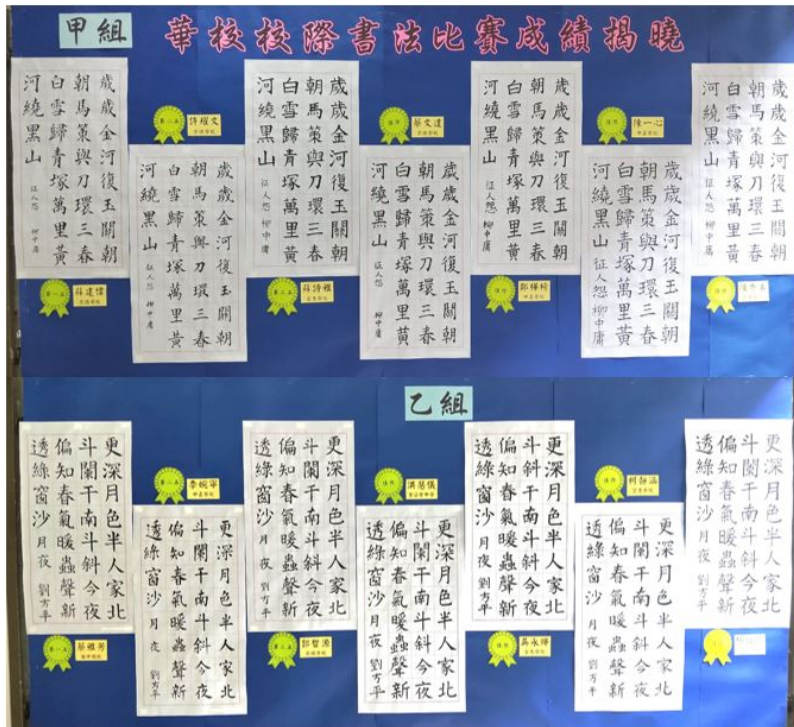 甲組
華校校際書法比賽成績揭曉
歲歲金河復玉關朝
朝馬策與刀環三春
白雪歸青塚萬里黃
河繞黑山 征人怨 柳中庸
第一名
第二名
許耀文
歲歲金河復玉關朝
朝馬策與刀環三春
白雪歸青塚萬里黃
河繞黑山 征人怨 柳中庸
歲歲金河復玉關朝
朝馬策與刀環三春
白雪歸青塚萬里黃
河繞黑山 征人怨 柳中庸
第三名
蘇詩雅
佳作
蔡文達
歲歲金河復玉關朝
朝馬策與刀環三春
白雪歸青塚萬里黃
河繞黑山 征人怨 柳中庸
歲歲金河復玉關朝
朝馬策與刀環三春
白雪歸青塚萬里黃
河繞黑山 征人怨 柳中庸
佳作
佳作
陳一心
歲歲金河復玉關朝
朝馬策與刀環三春
白雪歸青塚萬里黃
河繞黑山 征人怨 柳中庸
歲歲金河復玉關朝
朝馬策與刀環三春
白雪歸青塚萬里黃
河繞黑山 征人怨 柳中庸
佳作
乙組
更深月色半人家北
斗闌干南斗斜今夜
偏知春氣暖蟲聲新
透綠窗沙 月夜 劉方平
第一名
蔡雅芳
第二名
李婉寧
更深月色半人家北
斗闌干南斗斜今夜
偏知春氣暖蟲聲新
透綠窗沙 月夜 劉方平
更深月色半人家北
斗闌干南斗斜今夜
偏知春氣暖蟲聲新
透綠窗沙 月夜 劉方平
第三名
郭智源
佳作
洪慧儀
更深月色半人家北
斗闌干南斗斜今夜
偏知春氣暖蟲聲新
透綠窗沙 月夜 劉方平
更深月色半人家北
斗斜干南斗斜今夜
偏知春氣暖蟲聲新
透綠窗沙 月夜 劉方平
佳作
吳永輝
佳作
柯靜涵
更深月色半人家北
斗闌干南斗斜今夜
偏知春氣暖蟲聲新
透綠窗沙 月夜 劉方平
更深月色半人家北
斗闌干南斗斜今夜
偏知春氣暖蟲聲新
透綠窗沙 月夜 劉方平